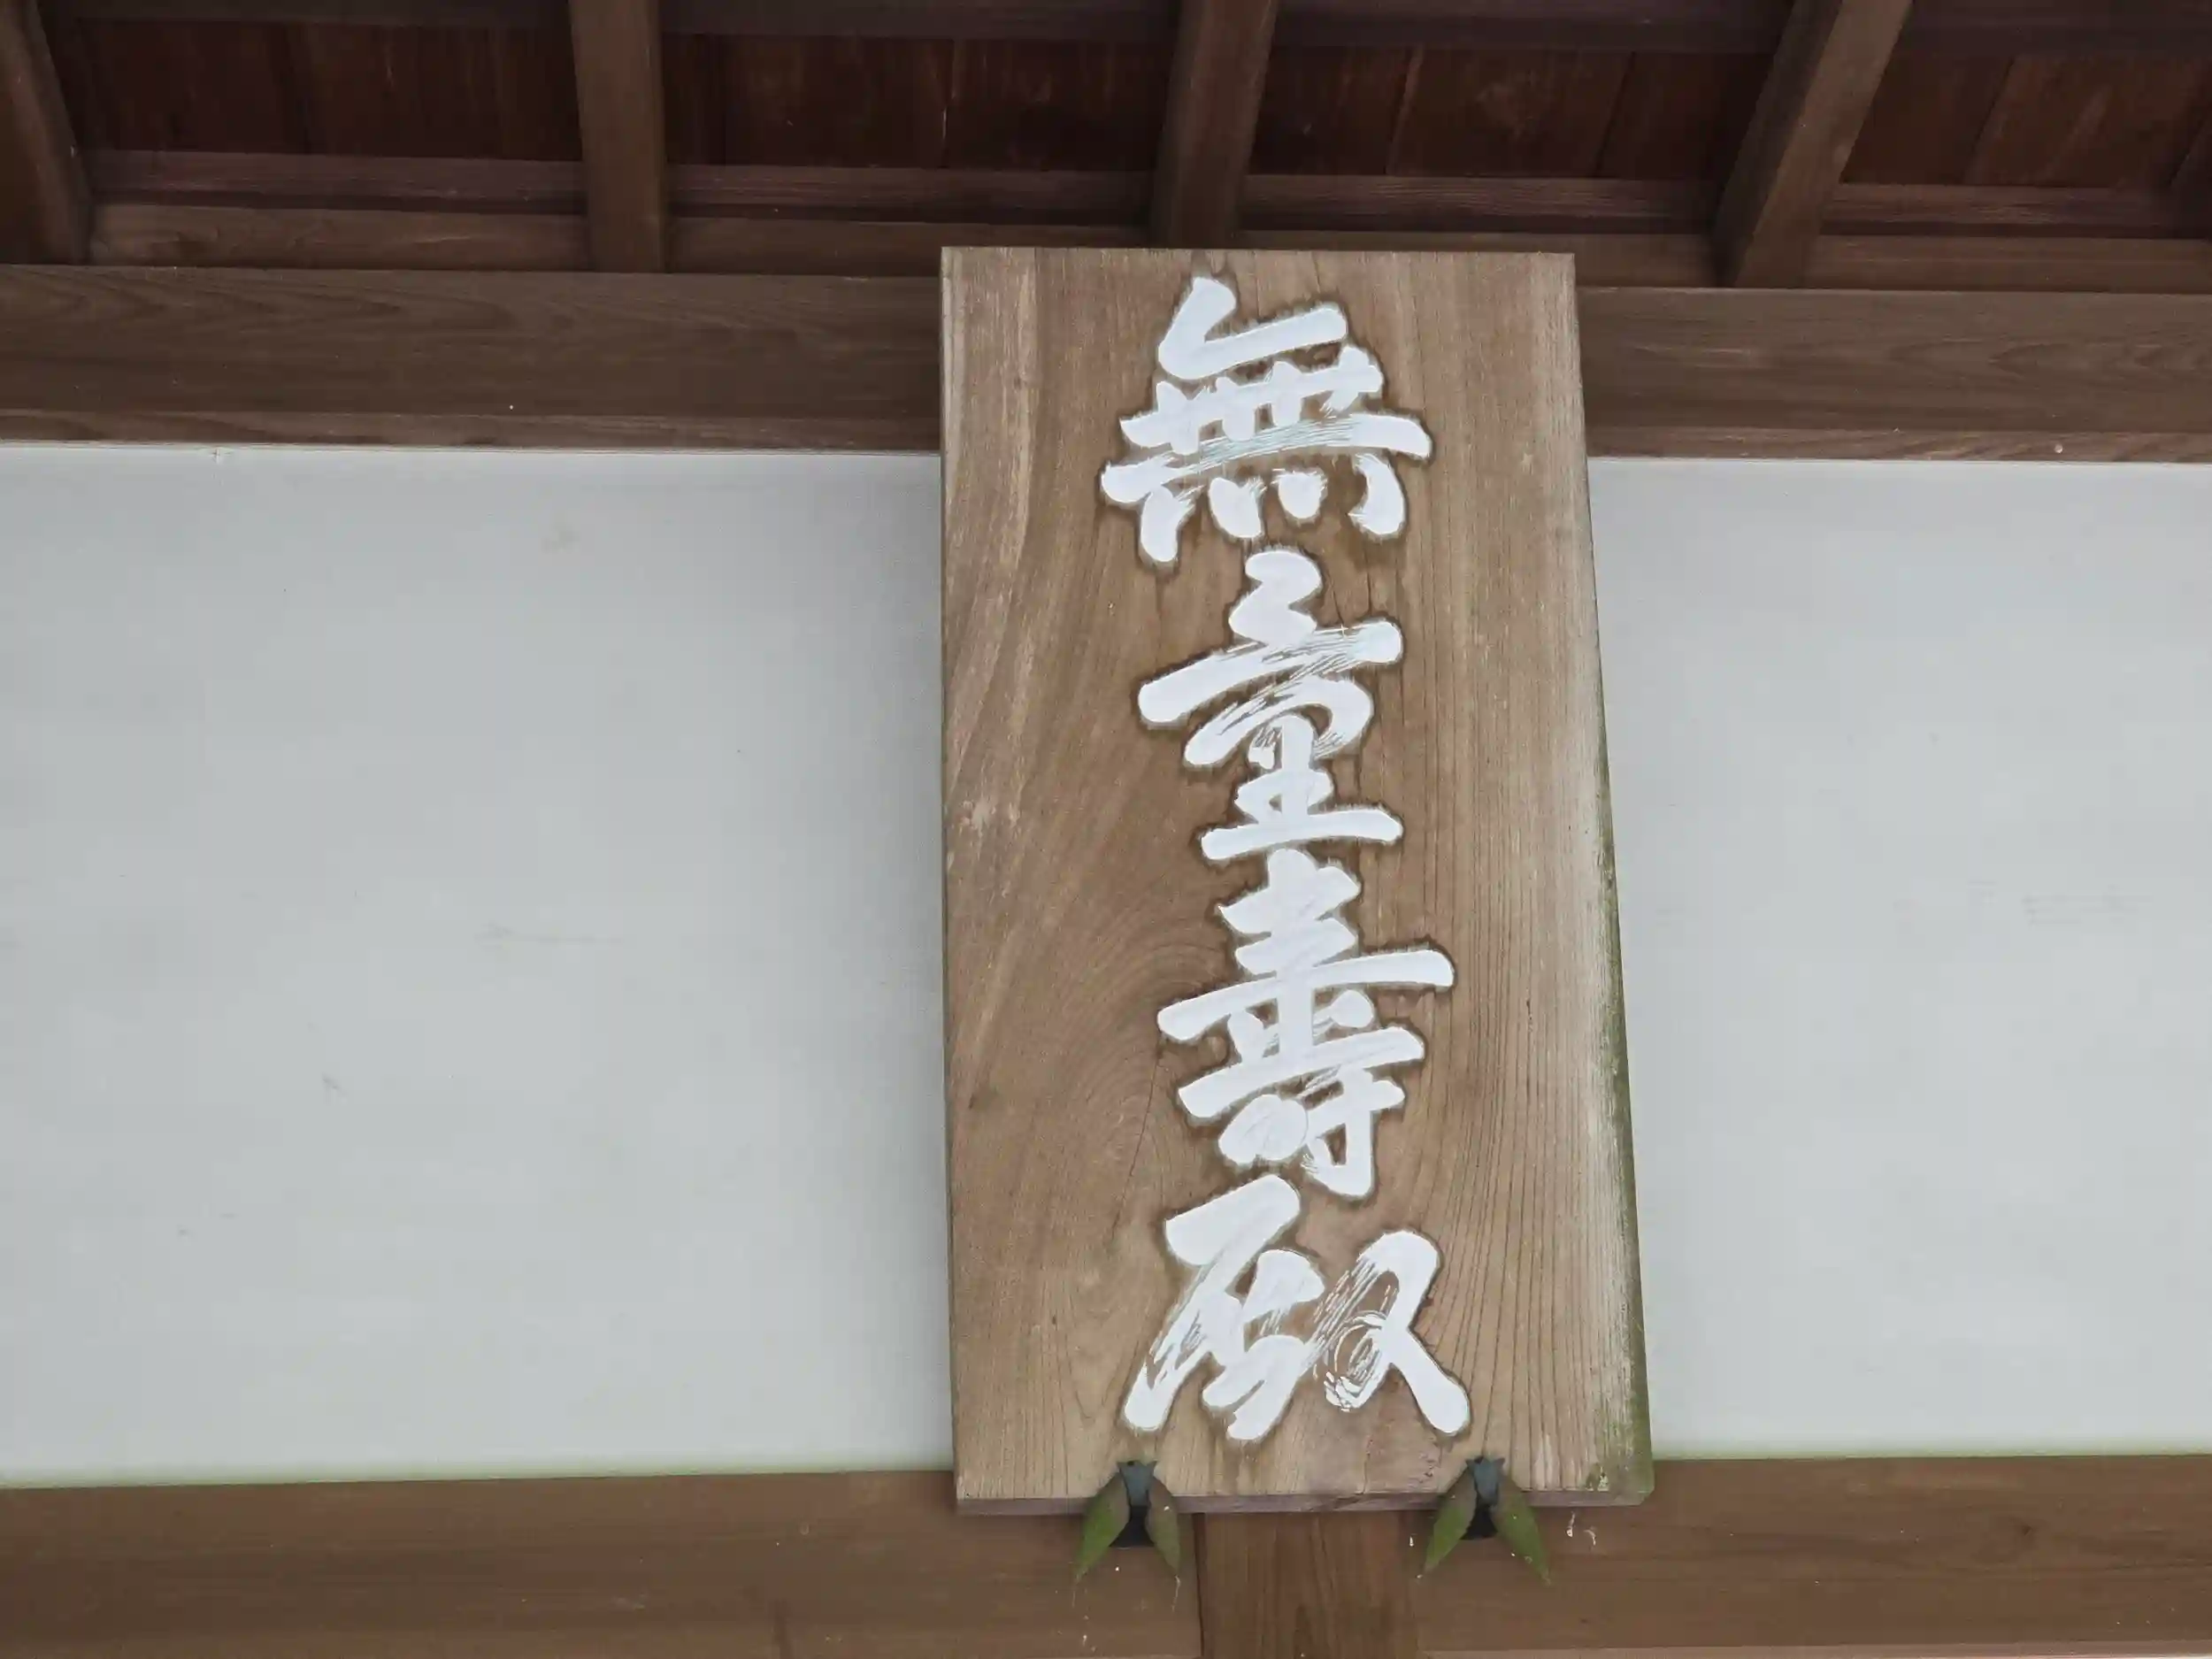 無量壽殿